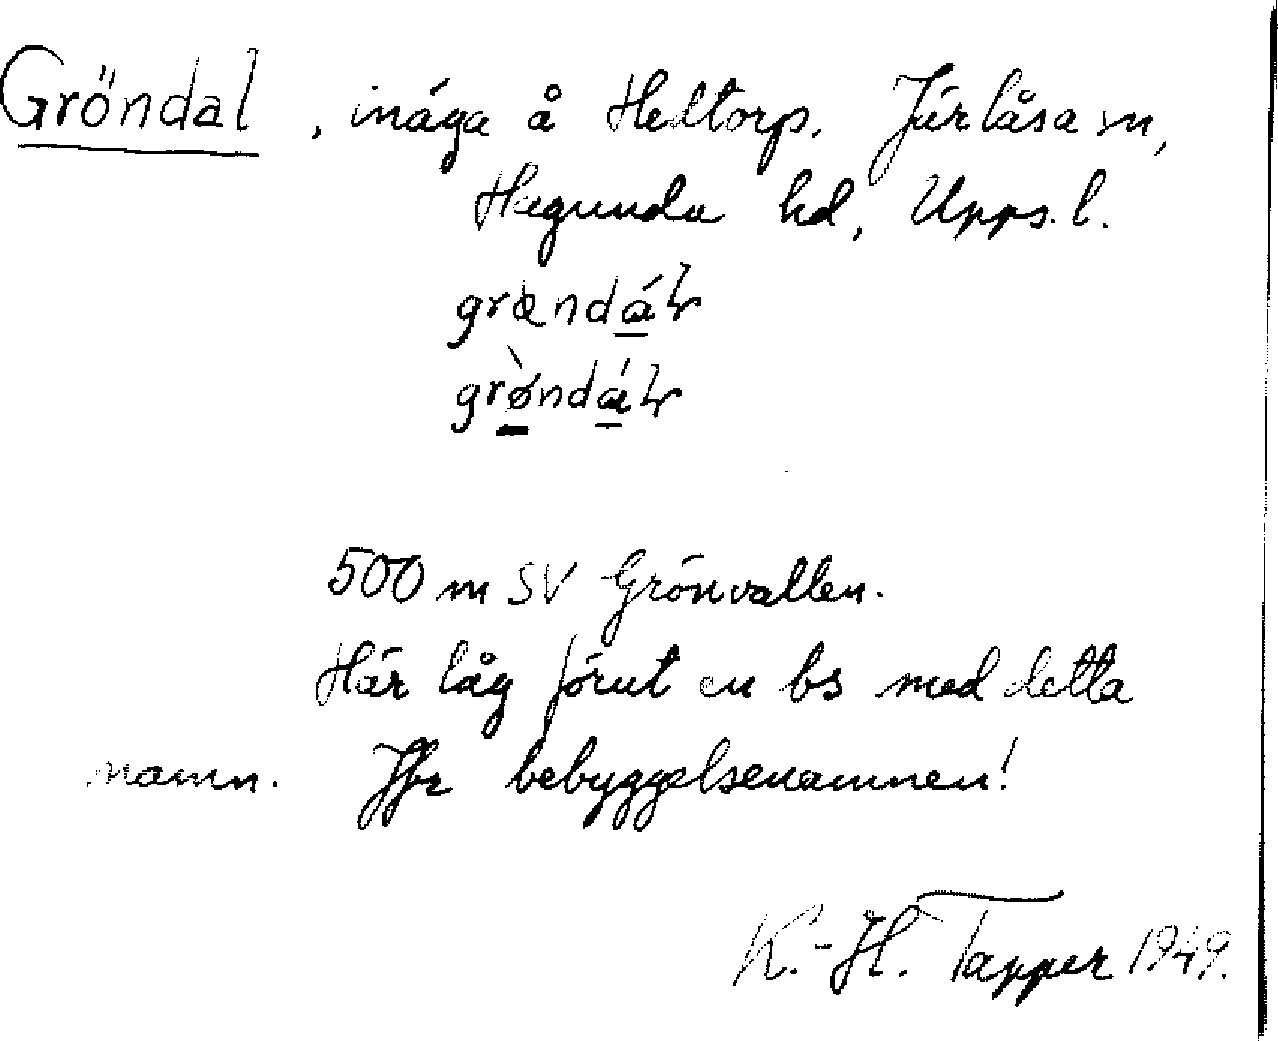 Gröndal, inäga å Hedtorp, Järlåsa sn,
Hagunda hd, Upps. l.
500 m SV Grönvallen.
Här låg förut en bs med detta
namn. Jfr bebyggelsenamnen!
K.-H. Tapper 1949.